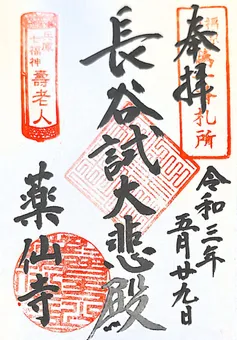 奉拝
札所
長谷試大悲殿
令和三年
五月廿九日
兵庫
七福神
壽老人
薬仙寺